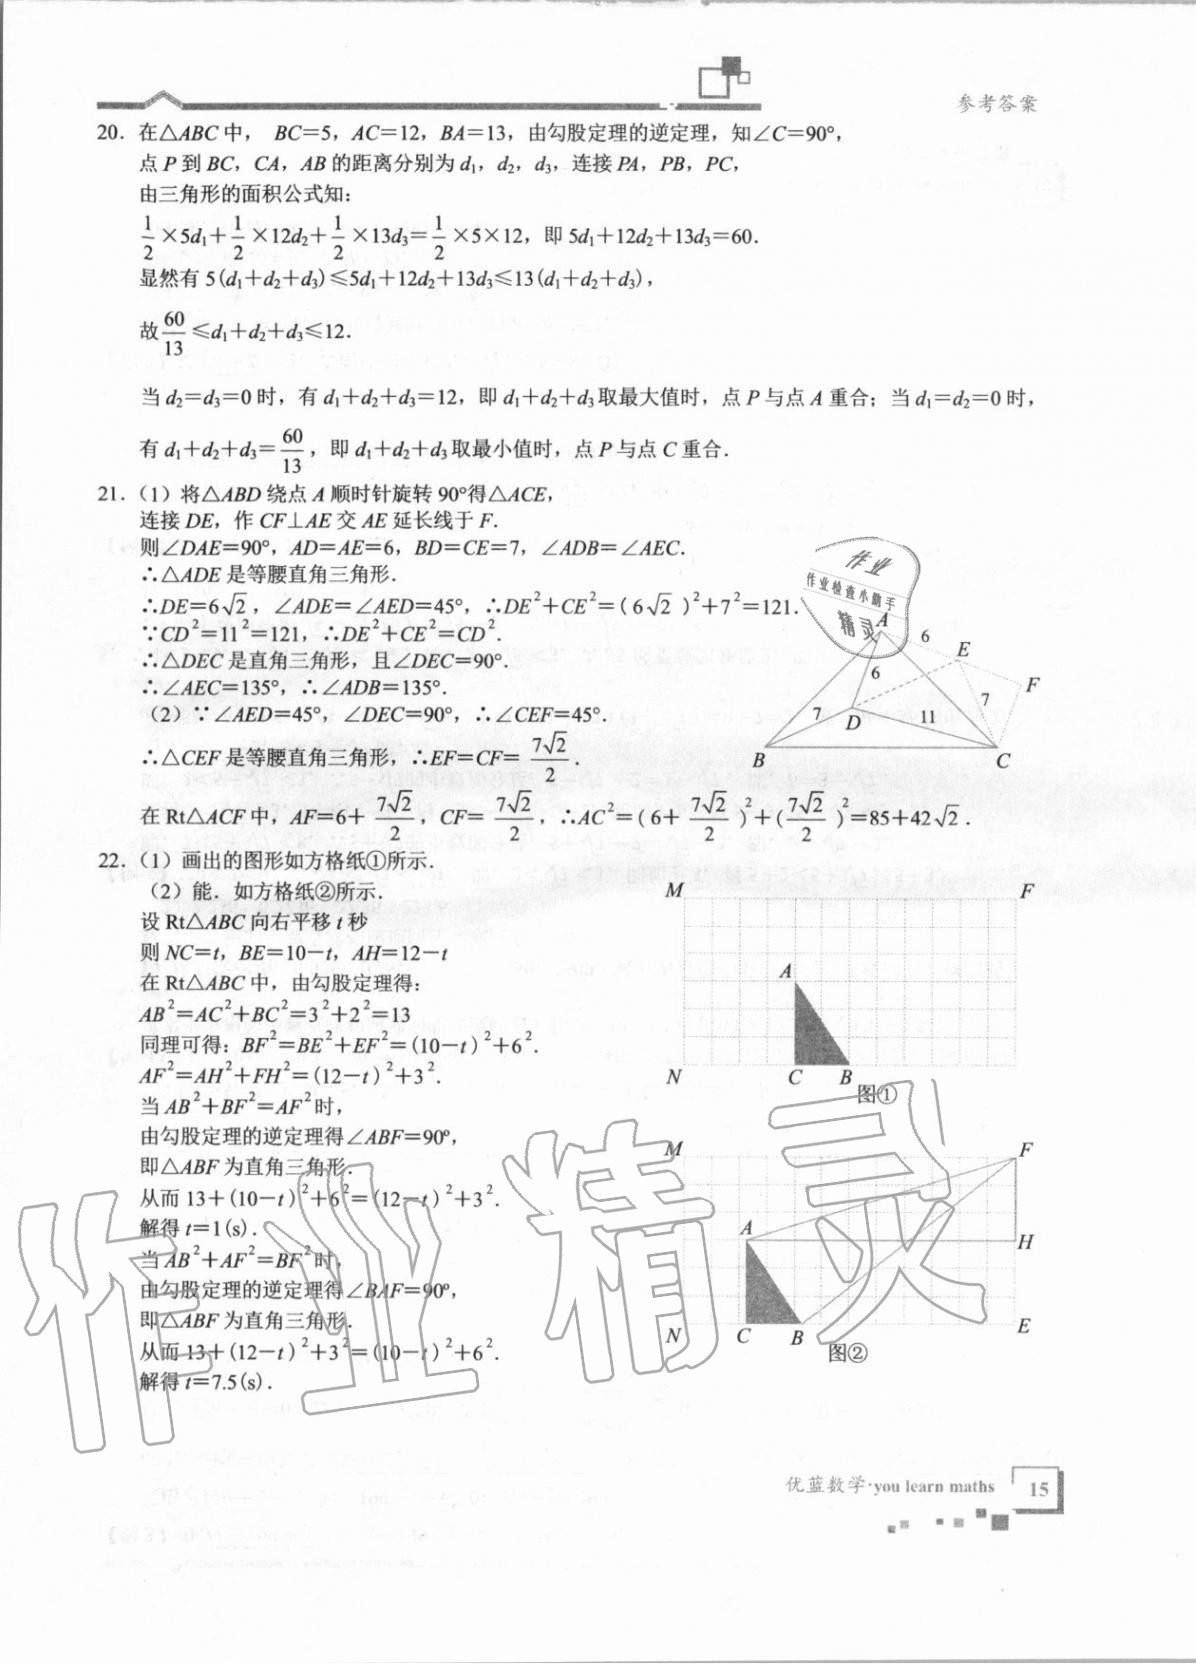 参考答案
20. 在△ABC中， BC=5，AC=12，BA=13，由勾股定理的逆定理，知∠C=90°，
点P到BC，CA，AB的距离分别为d₁，d₂，d₃，连接PA，PB，PC，
由三角形的面积公式知：
1/2×5d₁+1/2×12d₂+1/2×13d₃=1/2×5×12，即5d₁+12d₂+13d₃=60.
显然有5(d₁+d₂+d₃)≤5d₁+12d₂+13d₃≤13(d₁+d₂+d₃)，
故60/13≤d₁+d₂+d₃≤12.
当d₂=d₃=0时，有d₁+d₂+d₃=12，即d₁+d₂+d₃取最大值时，点P与点A重合；当d₁=d₂=0时，
有d₁+d₂+d₃=60/13，即d₁+d₂+d₃取最小值时，点P与点C重合.
21.（1）将△ABD绕点A顺时针旋转90°得△ACE，
连接DE，作CF⊥AE交AE延长线于F.
则∠DAE=90°，AD=AE=6，BD=CE=7，∠ADB=∠AEC.
∴△ADE是等腰直角三角形.
∴DE=6√2，∠ADE=∠AED=45°，∴DE²+CE²=(6√2)²+7²=121.
∵CD²=11²=121，∴DE²+CE²=CD².
∴△DEC是直角三角形，且∠DEC=90°.
∴∠AEC=135°，∴∠ADB=135°.
（2）∵∠AED=45°，∠DEC=90°，∴∠CEF=45°.
∴△CEF是等腰直角三角形，∴EF=CF=7√2/2.
在Rt△ACF中，AF=6+7√2/2，CF=7√2/2，∴AC²=(6+7√2/2)²+(7√2/2)²=85+42√2.
作业
作业检查小助手
精灵
A
6
E
6
F
7
7
D
11
B
C
22.（1）画出的图形如方格纸①所示.
（2）能. 如方格纸②所示.
设Rt△ABC向右平移t秒
则NC=t，BE=10-t，AH=12-t
在Rt△ABC中，由勾股定理得：
AB²=AC²+BC²=3²+2²=13
同理可得：BF²=BE²+EF²=(10-t)²+6².
AF²=AH²+FH²=(12-t)²+3².
当AB²+BF²=AF²时，
由勾股定理的逆定理得∠ABF=90°，
即△ABF为直角三角形.
从而13+(10-t)²+6²=(12-t)²+3².
解得t=1(s).
当AB²+AF²=BF²时，
由勾股定理的逆定理得∠BAF=90°，
即△ABF为直角三角形.
从而13+(12-t)²+3²=(10-t)²+6².
解得t=7.5(s).
M
F
A
N
C
B
图①
M
F
A
H
N
C
B
E
图②
作业精灵
优蓝数学·you learn maths
15